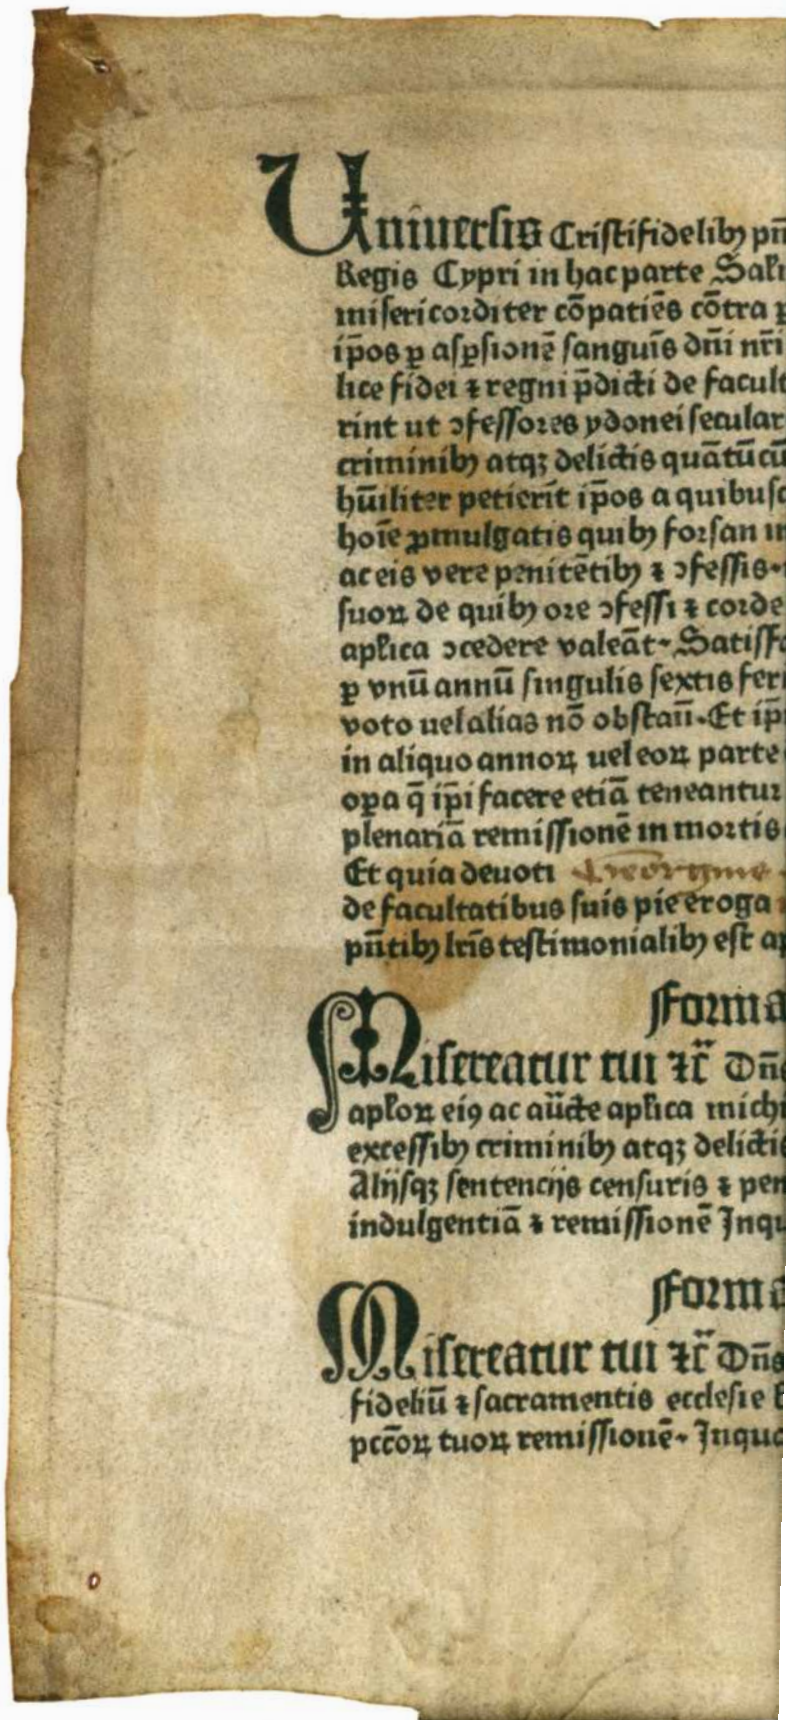 Uniuersis Cristifidelibꝫ pn̄
Regis Cypri in hac parte Salu
misericorditer cōpatiēs cōtra
ip̄os ꝑ asꝑsionē sanguīs dn̄i nr̄i
lice fidei ⁊ regni p̄dicti de facult
rint ut ꝯfessores ydonei secular
criminibꝫ atqꝫ delictis quātūcū
hūiliter petierīt ip̄os a quibusc
hoīe ꝓmulgatis quibꝫ forsan in
ac eis vere penitētibꝫ ⁊ ꝯfessis
suoꝝ de quibꝫ ore ꝯfessi ⁊ corde
apl̄ica ꝯcedere valeāt. Satisfa
ꝑ vnū annū singulis sextis feri
voto uel alias nō obstan̄. Et ip̄
in aliquo annoꝝ uel eoꝝ parte
oꝑa q̄ ip̄i facere etiā teneantur
plenariā remissionē in mortis
Et quia deuoti
de facultatibus suis pie eroga
pn̄tibꝫ lr̄is testimonialibꝫ est ap
Forma
Misereatur tui ⁊c̄ Dn̄s
apl̄oꝝ eiꝯ ac aūcte apl̄ica michi
excessibꝫ criminibꝫ atqꝫ delictis
Alijsqꝫ sentencijs censuris ⁊ pen
indulgentiā ⁊ remissionē Inqu
Forma
Misereatur tui ⁊c̄ Dn̄s
fideliū ⁊ sacramentis ecclesie
pcc̄oꝝ tuoꝝ remissionē. Inqua